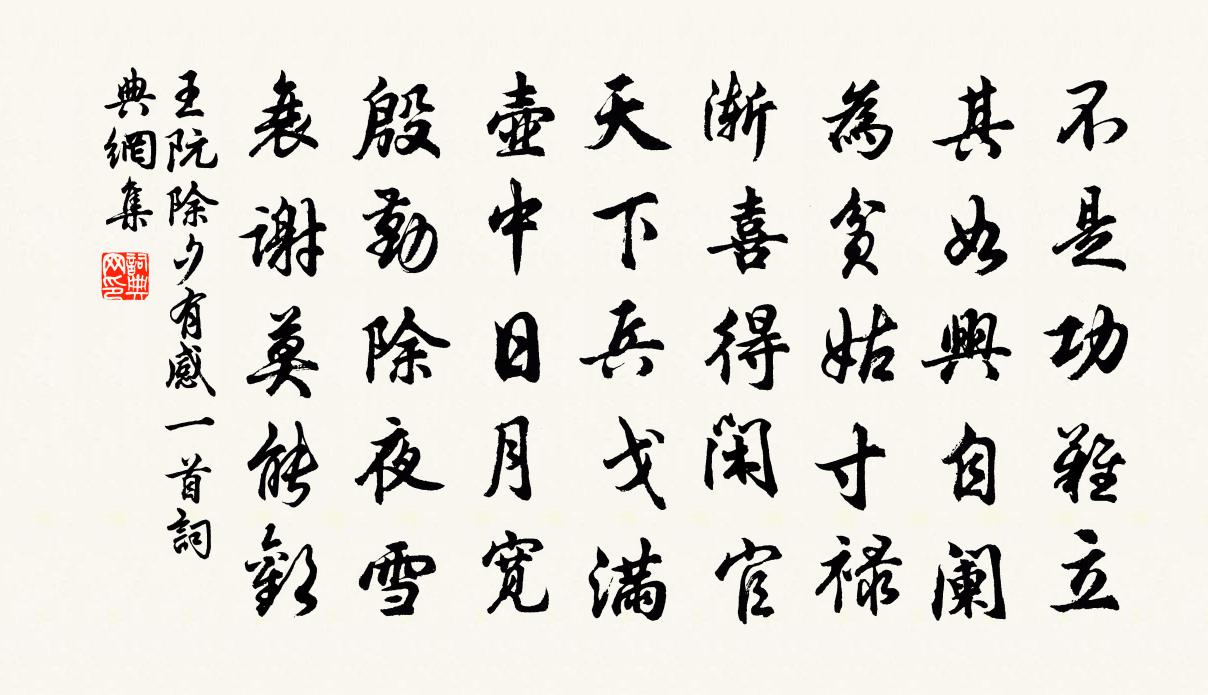 不是功難立
其如興自闌
為貧姑寸祿
漸喜得閑官
天下兵戈滿
壺中日月寬
殷勤除夜雪
衰謝莫能歡
王阮除夕有感一首詞
典網集
詞典
网印